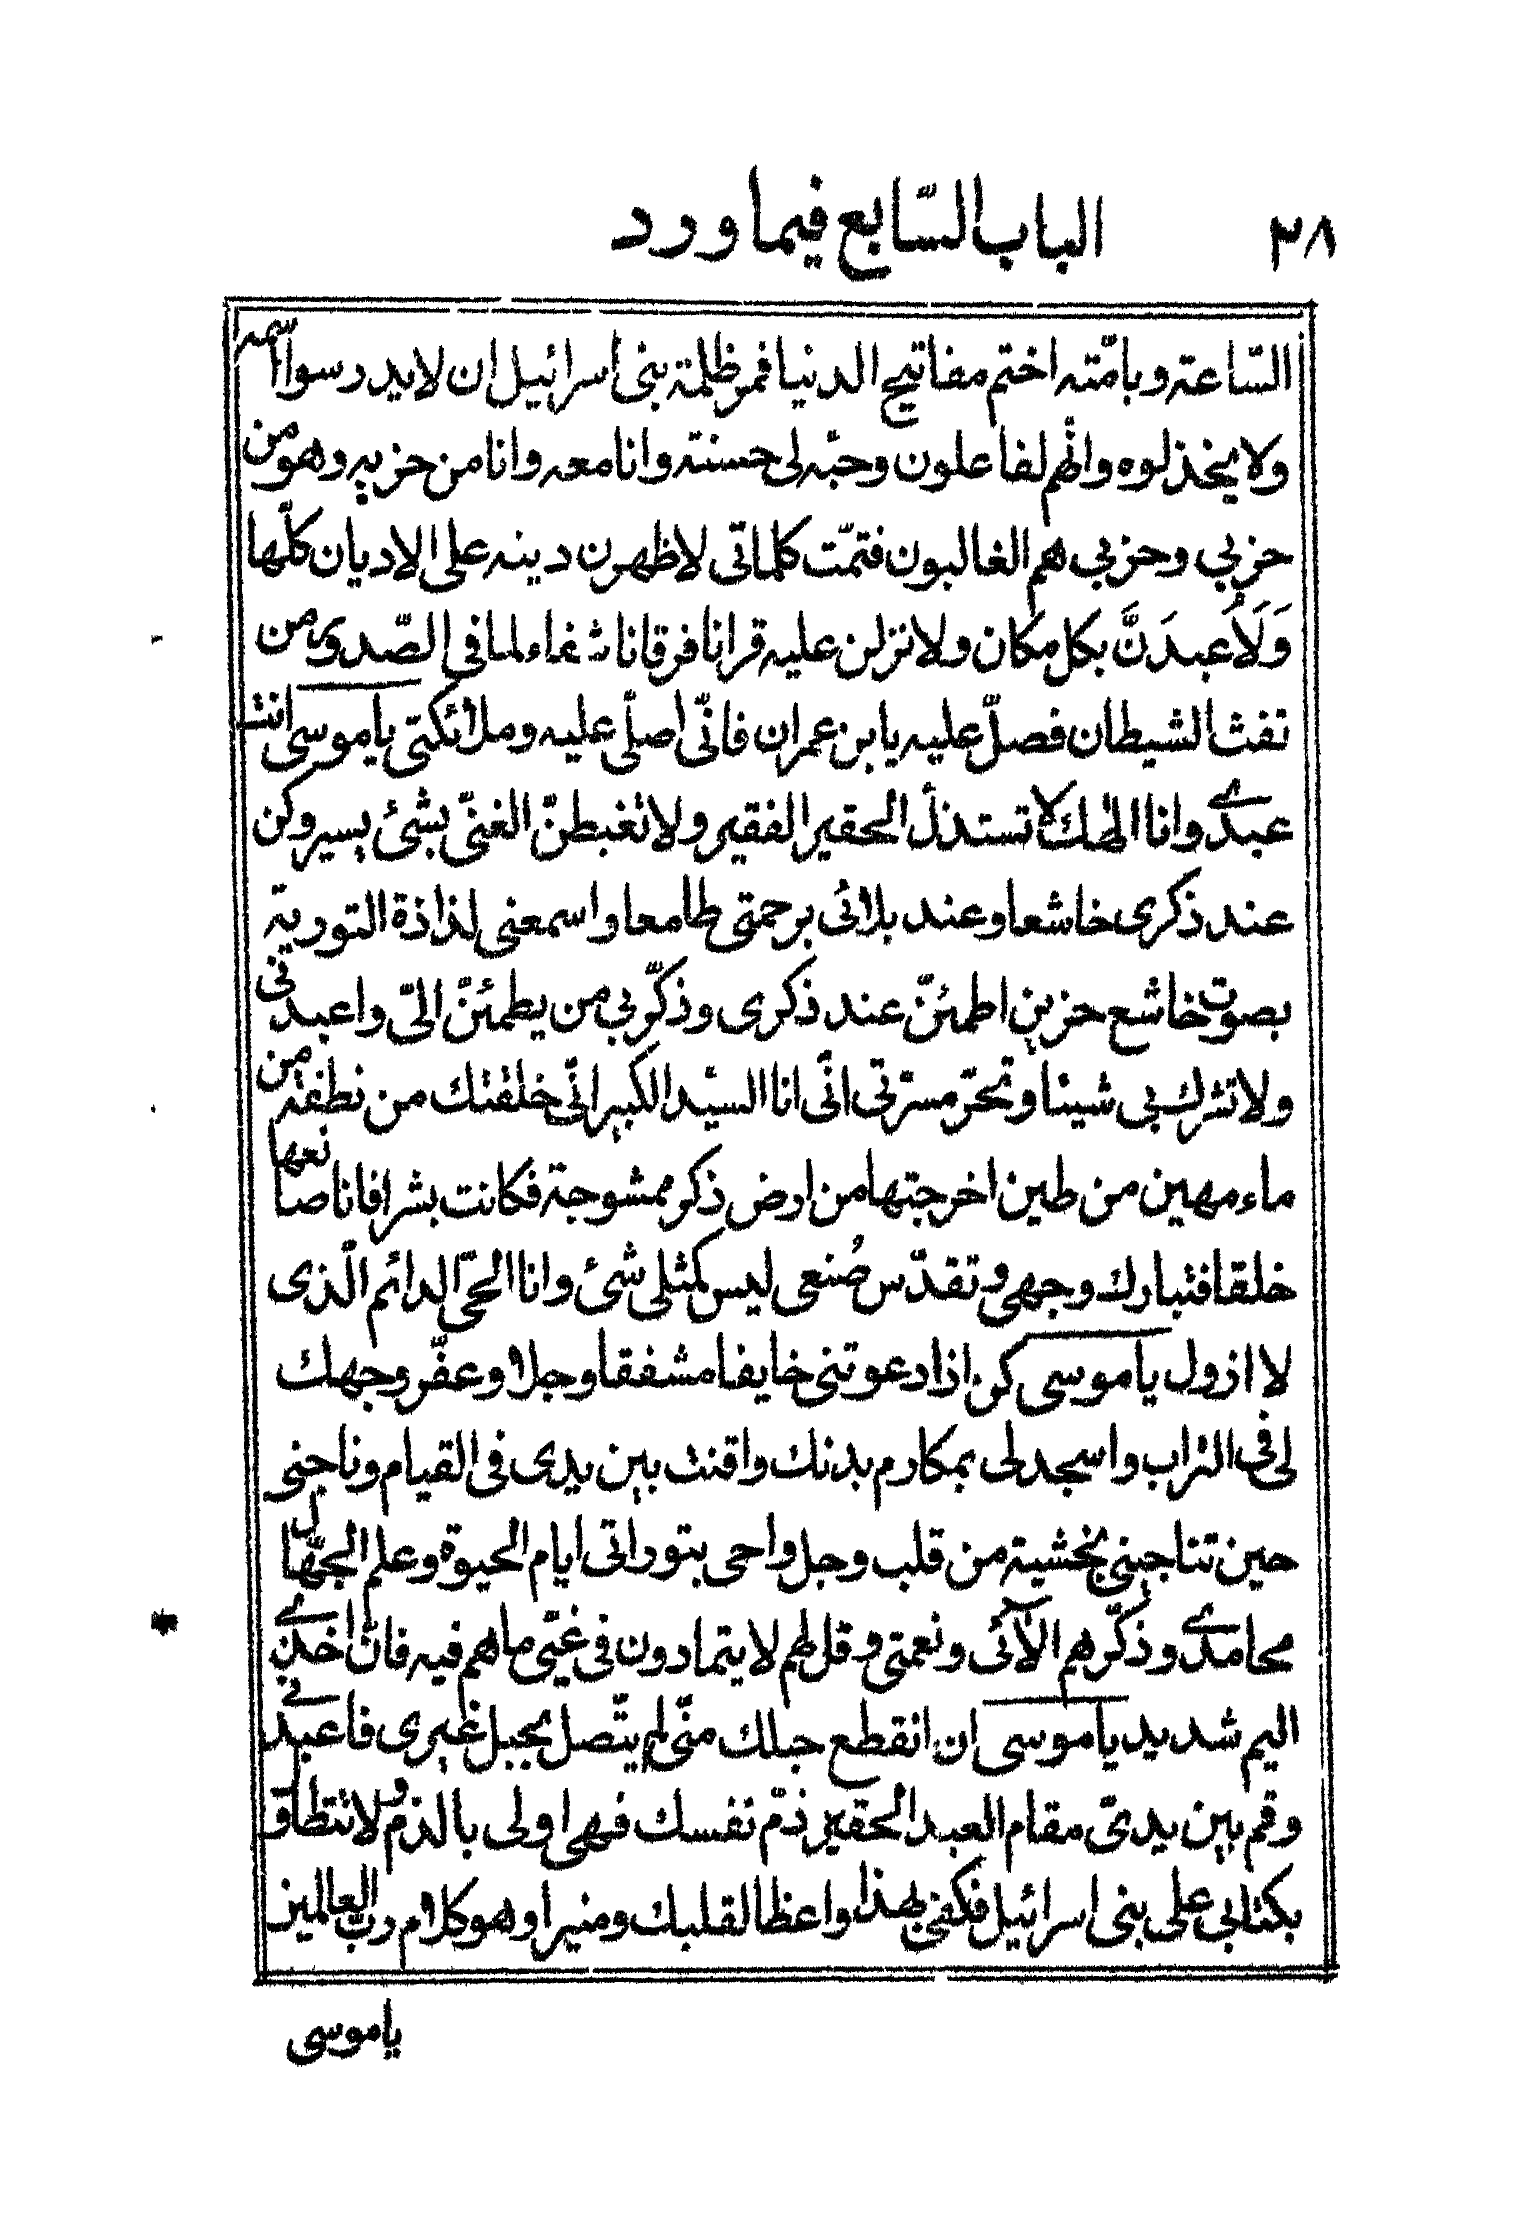 ٢٨
الباب السّابع فيما ورد
السّاعة وبامّته اختم مفاتيح الدنيا فمر ظلمة بنى اسرائيل ان لا يدرسوا اسمه
ولا يخذلوه وانّهم لفاعلون وحبّه لى حسنة وانا معه وانا من حزبه وهو من
حزبي وحزبي هم الغالبون فتمّت كلماتى لاظهرن دينه على الاديان كلّها
وَلَاُعبدَنَّ بكل مكان ولانزلن عليه قرانا فرقانا شفاء لما فى الصّدور من
نفث الشيطان فصلّ عليه يابن عمران فانّى اصلّى عليه وملائكتى ياموسى انت
عبدي وانا الهك لا تستذلّ الحقير الفقير ولا تغبطنّ الغنىّ بشئ يسير وكن
عند ذكرى خاشعا وعند بلائى برحمتى طامعا واسمعنى لذاذة التورية
بصوت خاشع حزين اطمئنّ عند ذكرى وذكّر بي من يطمئنّ الىّ واعبدنى
ولا تشرك بي شيئا وتحرّ مسرّتى انّى انا السيّد الكبير انّى خلقتك من نطفة من
ماء مهين من طين اخرجتها من ارض ذكر ممشوجة فكانت بشرا فانا صانعها
خلقا فتبارك وجهى وتقدّس صُنعى ليس كمثلى شئ وانا الحىّ الدائم الّذى
لا ازول ياموسى كن اذا دعوتنى خايفا مشفقا وجلا وعفّر وجهك
لى فى التراب واسجد لى بمكارم بدنك واقنت بين يدى فى القيام وناجنى
حين تناجينى بخشية من قلب وجل واحى بتوراتى ايام الحيوة وعلم الجهّال
محامدي وذكّرهم الآئى ونعمتى وقل لهم لا يتمادون فى غيّى ما هم فيه فانّ اخذي
اليم شديد ياموسى ان انقطع حبلك منّى لم يتّصل بحبل غيرى فاعبدنى
وقم بين يدىّ مقام العبد الحقير ذمّ نفسك فهى اولى بالذم ولا تتطاول
بكتابى على بنى اسرائيل فكفى بهذا واعظا لقلبك ومنيرا وهو كلام رب العالمين
ياموسى